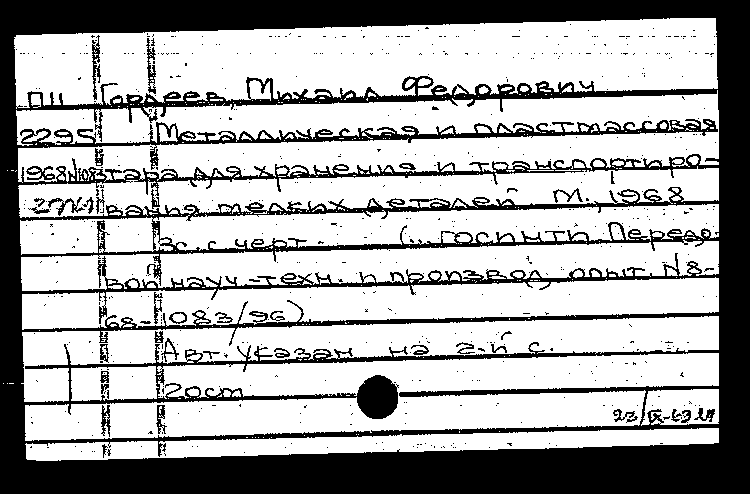 П11 Гордеев, Михаил Федорович
2295 Металлическая и пластмассовая
1968№1083 тара для хранения и транспортиро-
вания мелких деталей М., 1968
3с. с черт. (...ГОСИНТИ Передо-
вой науч.-техн. и производ. опыт. №8-
68-1083/96).
Авт. указан на 2-й с.
20ст
23/IX-69